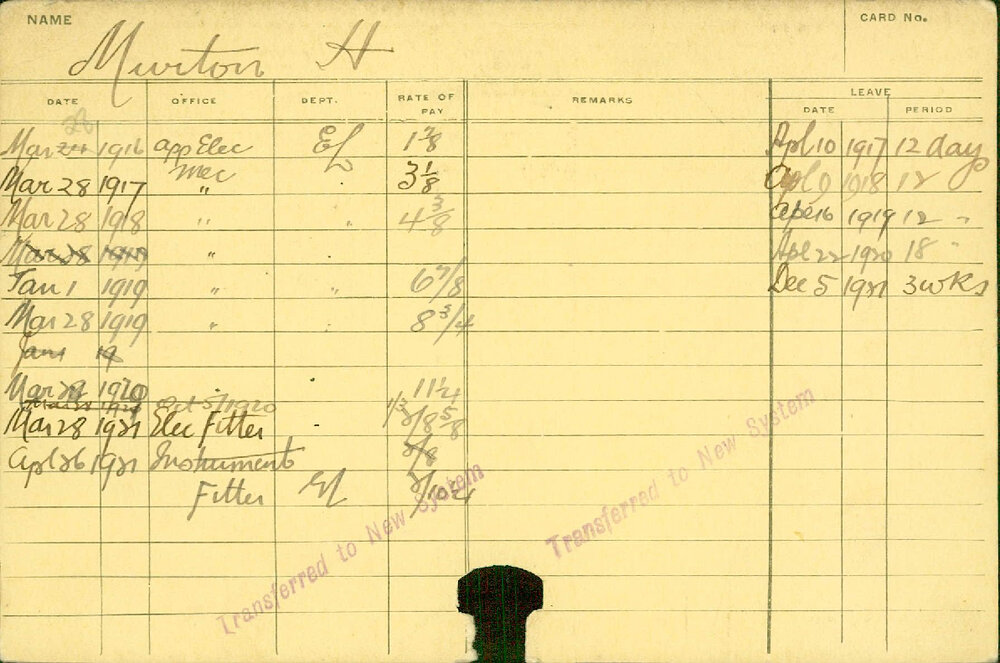 NAME
CARD No.
Murton H
DATE OFFICE DEPT. RATE OF PAY REMARKS LEAVE
DATE PERIOD
28
Mar 1916 app Elec EL 1 7/8 Apl 10 1917 12 days
Mec
Mar 28 1917 " 3 1/8 Apl 9 1918 12
Mar 28 1918 " " 4 3/8 Ape 16 1919 12 "
Mar 28 1919 " Apl 22 1920 18 "
Jan 1 1919 " " 6 7/8 Dec 5 1921 3 wks
Mar 28 1919 " 8 3/4
Jan 1 19
Mar 28 1920 11 1/4
Oct 5/1920
Mar 28 1921 Elec Fitter
Apl 26 1921 Instrument
Fitter EL
Transferred to New System
Transferred to New System